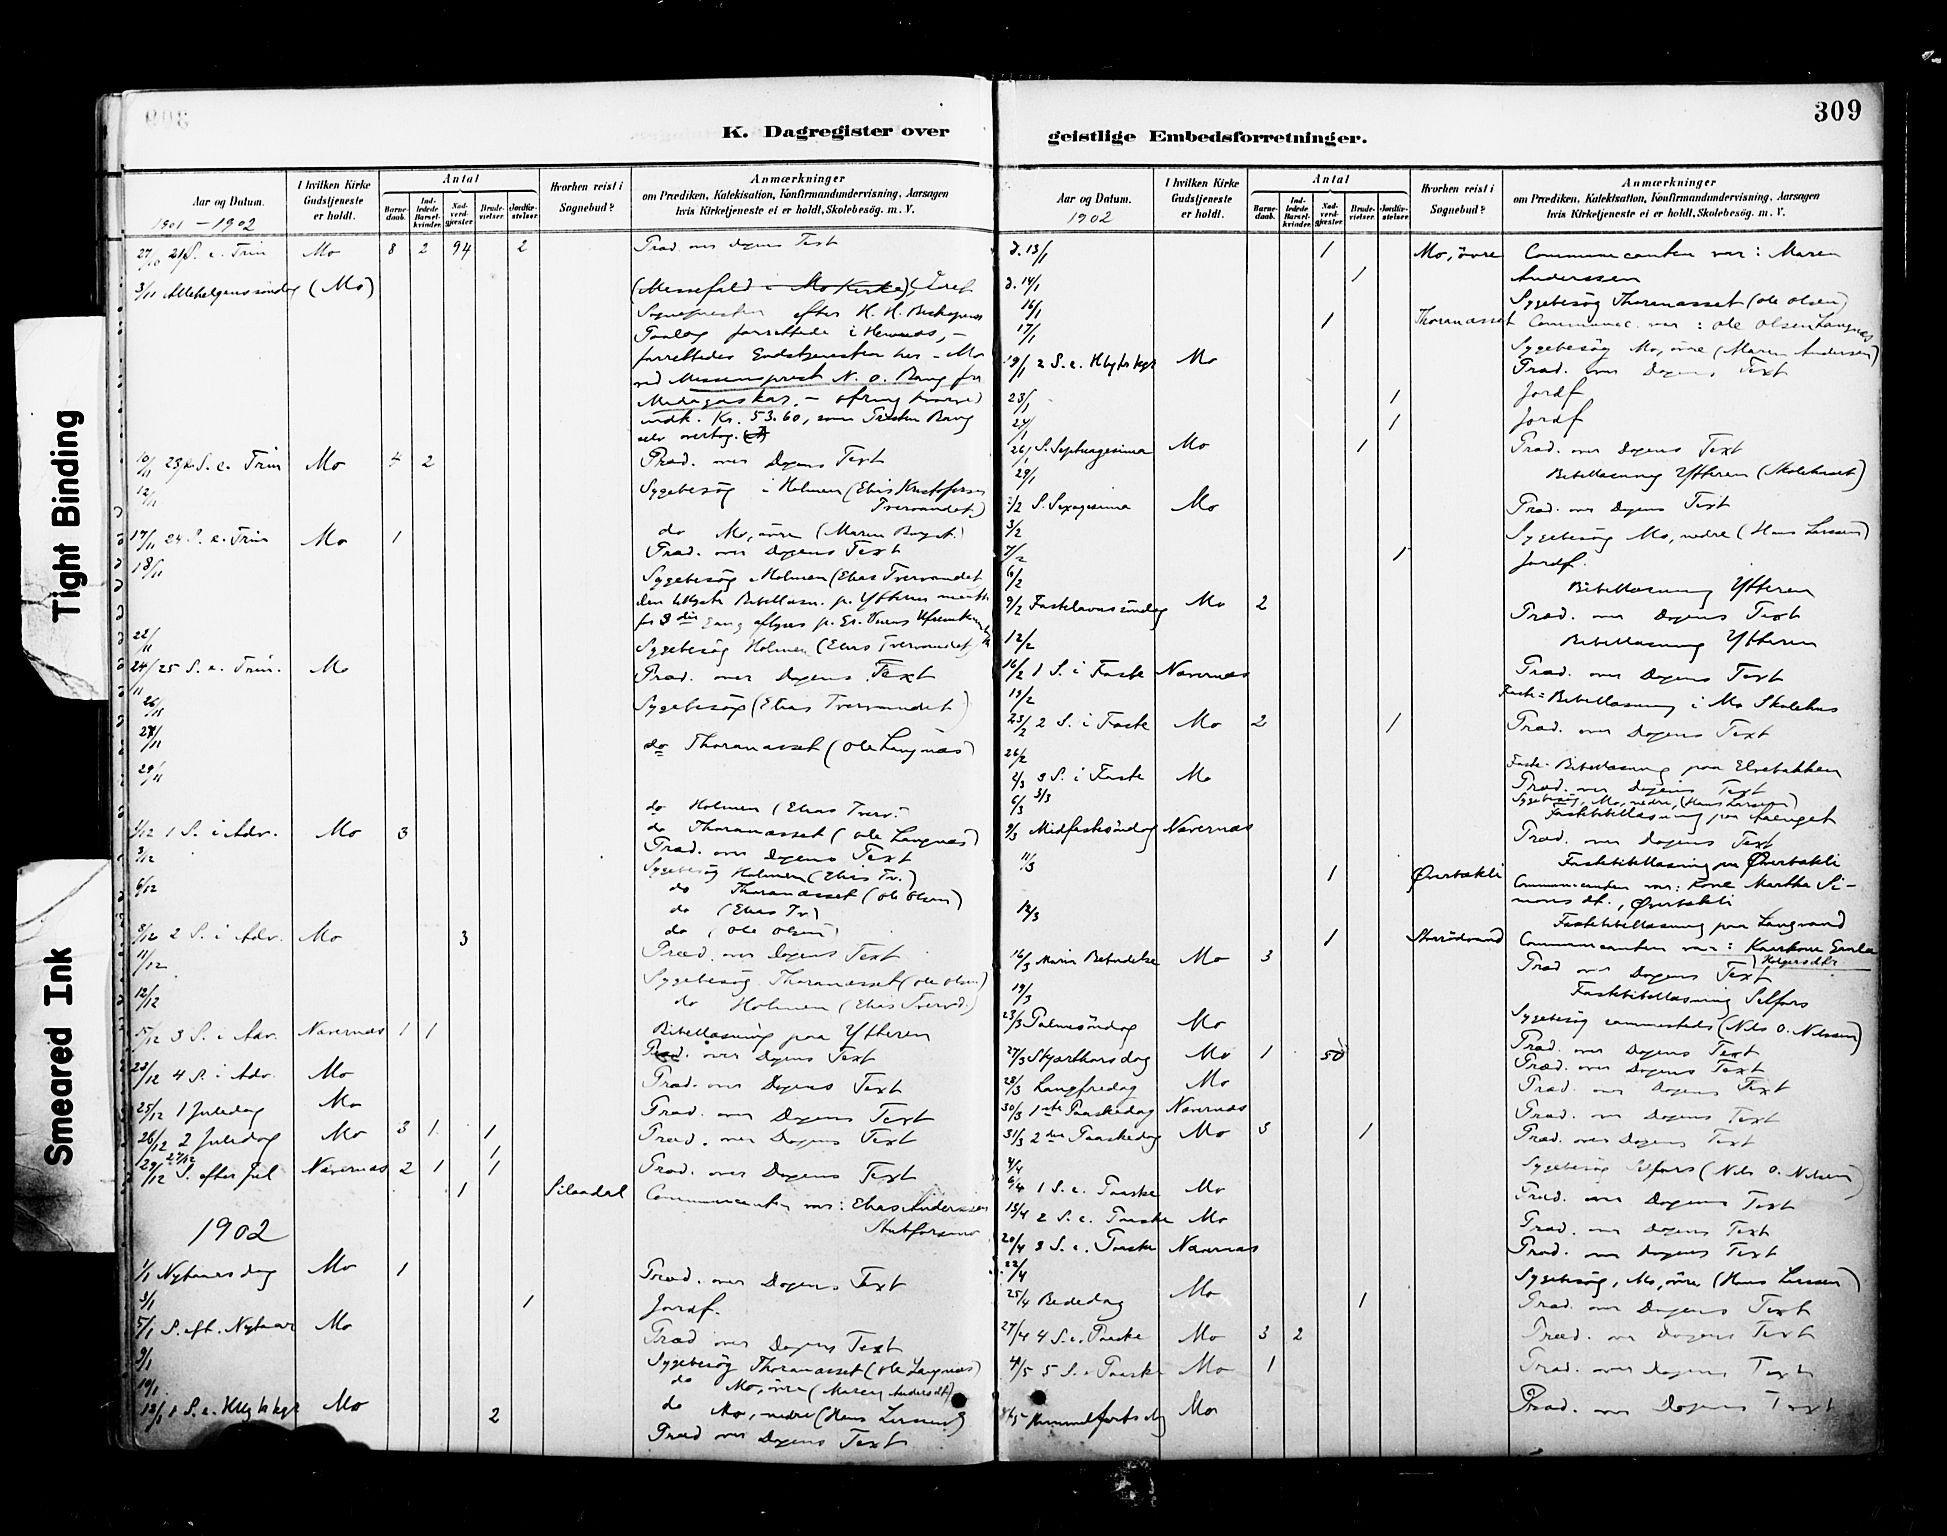 309
K. Dagregister over
geistlige Embedsforretninger.
Tight Binding
Smeared Ink
Aar og Datum.
1901 – 1902
I hvilken Kirke Gudstjeneste er holdt.
Antal
Barne-daab.
Ind-ledede Barsel-kvinder.
Nad-verd-gjester.
Brude-vielser.
Jordfæ-stelser.
Hvorhen reist i Sognebud?
Anmærkninger
om Prædiken, Katekisation, Konfirmandundervisning, Aarsagen
hvis Kirketjeneste ei er holdt, Skolebesøg. m. V.
27/10 21 S. e. Trin Mo 8 2 94 2 Præd. over Dagens Text
3/11 Allehelgenssøndag (Mo) (Messefald i Mo Kirke),
Sognepresten efter H. H. Biskopens
forrettede i
forrettedes Gudstjenesten her – Mo
ved Missionsprest N. O. Bang fra
Madagaskar, – ofring
indk. Kr. 53.60, som Bang
selv overtog.
10/11 23 S. e. Trin Mo 4 2 Præd. over Dagens Text
12/11 Sygebesøg i Holmen (Elias Kristofersen
Trervandet)
do Mo, øvre
17/11 24 S. e. Trin Mo 1 Præd. over Dagens Text
18/11 Sygebesøg Holmen (Elias Trervandet)
22/11 Sygebesøg Holmen (Elias Trervandet)
24/11 25 S. e. Trin. Mo Præd. over Dagens Text
26/11 Sygebesøg (Elias Trervandet)
27/11 do Thoranæsset (Ole Langnæs)
29/11 do Holmen (Elias Trerv.
do Thoranæsset (Ole Langnæs)
1/12 1 S. i Adv. Mo 3 Præd. over Dagens Text
3/12 Sygebesøg Holmen (Elias Tr.)
do Thoranæsset (Ole Olsen)
6/12 do (Elias Tr)
do (Ole Olsen)
8/12 2 S. i Adv. Mo 3 Præd. over Dagens Text
11/12 Sygebesøg Thoranæsset (Ole Olsen)
do Holmen (Elias Trervd.)
12/12 Bibellæsning paa Ytteren
15/12 3 S. i Adv. Nævernæs 1 1 Præd. over Dagens Text
22/12 4 S. i Adv. Mo Præd. over Dagens Text
25/12 1 Juledag Mo Præd. over Dagens Text
26/12 2 Juledag Mo 3 1 1 Præd. over Dagens Text
27/12 1
29/12 S. efter Jul Nævernæs 2 1 1 Præd. over Dagens Text
1 Communicanten var: Elias Anderssen
1902
1/1 Nytaarsdag Mo 1 Præd. over Dagens Text
3/1 1 Jordf.
5/1 S. eft. Nytaar Mo Præd over Dagens Text
9/1 Sygebesøg Thoranæsset (Ole Langnæs)
do Mo, øvre (Maren Andersdt.)
10/1 do Mo, nedre (Hans Larssen)
12/1 1 S. e. H. 3 K. Mo 2 Præd over Dagens Text
Aar og Datum.
1902
I hvilken Kirke Gudstjeneste er holdt.
Antal
Barne-daab.
Ind-ledede Barsel-kvinder.
Nad-verd-gjester.
Brude-vielser.
Jordfæ-stelser.
Hvorhen reist i Sognebud?
Anmærkninger
om Prædiken, Katekisation, Konfirmandundervisning, Aarsagen
hvis Kirketjeneste ei er holdt, Skolebesøg. m. V.
d. 13/1 1 Mo, øvre Communicanten var: Maren
Anderssen
d. 14/1 1
16/1 Sygebesøg Thoranæsset (Ole Olsen)
17/1 1 Thoranæsset Communic. var: Ole Olsen Langnæs
Sygebesøg Mo, øvre (Maren Andersen)
19/1 2 S. e. Mo Præd. over Dagens Text
23/1 1 Jordf
24/1 1 Jordf
26/1 S. Septuagesima Mo 1 Præd. over Dagens Text
29/1 Bibellæsning Ytteren (Skolehuset)
2/2 S. Sexagesima Mo Præd. over Dagens Text
3/2 Sygebesøg Mo, nedre (Hans Larssen)
7/2 1 Jordf.
6/2 Bibellæsning Ytteren
9/2 Fastelavnssøndag Mo 2 Præd. over Dagens Text
12/2 Bibellæsning Ytteren
16/2 1 S. i Faste Nævernæs Præd. over Dagens Text
19/2 Faste-Bibellæsning i Mo Skolehus
23/2 2 S. i Faste Mo 2 1 Præd. over Dagens Text
26/2 Faste-Bibellæsning paa Elvebakken
2/3 3 S. i Faste Mo Præd. over Dagens Text
3/3 Sygebesøg, Mo, nedre, (Hans Larssen)
6/3 Fastebibellæsning paa
9/3 Midfastesøndag Nævernæs Præd. over Dagens Text
11/3 Fastebibellæsning paa Øverbækli
1 Øverbækli Communicanten var: Kone Martha Si-
mons dt., Øverbækli
12/3 Fastebibellæsning paa Langvand
1 Communicanten var:
16/3 Mariæ Bebudelse Mo 3 Præd over Dagens Text
19/3 Fastebibellæsning Selfors
Sygebesøg sammesteds (Nils O. Nilssen)
23/3 Palmesøndag Mo Præd. over Dagens Text
27/3 Skjærthorsdag Mo 1 50 Præd. over Dagens Text
28/3 Langfredag Mo Præd. over Dagens Text
30/3 1ste Paaskedag Nævernæs Præd. over Dagens Text
31/3 2den Paaskedag Mo 3 1 Præd. over Dagens Text
4/4 Sygebesøg Selfors (Nils O. Nilssen)
6/4 1 S. e. Paaske Mo Præd. over Dagens Text
13/4 2 S. e. Paaske Mo Præd. over Dagens Text
20/4 3 S. e. Paaske Nævernæs Præd. over Dagens Text
22/4 Sygebesøg, Mo, øvre (Hans Larssen)
25/4 Bededag Mo 1 Præd. over Dagens Text
27/4 4 S. e. Paaske Mo 3 2 Præd. over Dagens Text
4/5 5 S. e. Paaske Mo 1 Præd. over Dagens Text
8/5 Himmelfartsdag Mo Præd. over Dagens Text